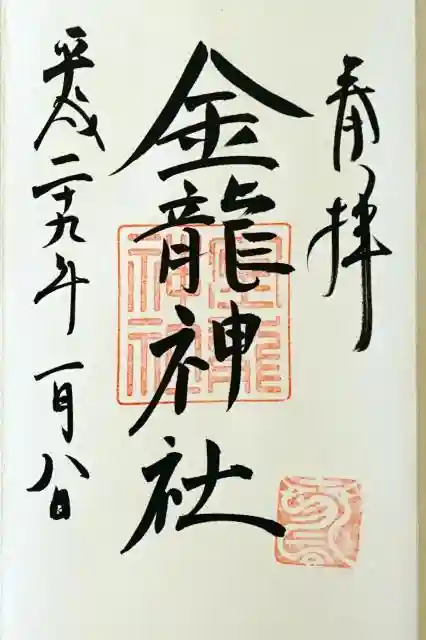 奉拝
金龍神社
平成二十九年一月八日
金龍
神社